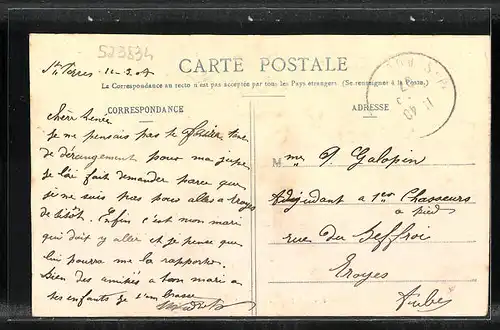 523834
CARTE POSTALE
La Correspondance au recto n'est pas acceptée par tous les Pays étrangers. (Se renseigner à la Poste.)
CORRESPONDANCE
je ne pensais pas te faire tant
de dérangement pour ma jupe
je l'ai fait demander parce que
je ne suis pas pour aller a Troyes
de sitôt. Enfin c'est mon mari
qui doit y aller et je pense que
lui pourra me la rapporter
Bien des amitiés a ton mari a
tes enfants je t'embrasse
ADRESSE
Mme P. Galopin
Adjudant a 1er Chasseurs
a pied
rue du Beffroi
Troyes
Aube